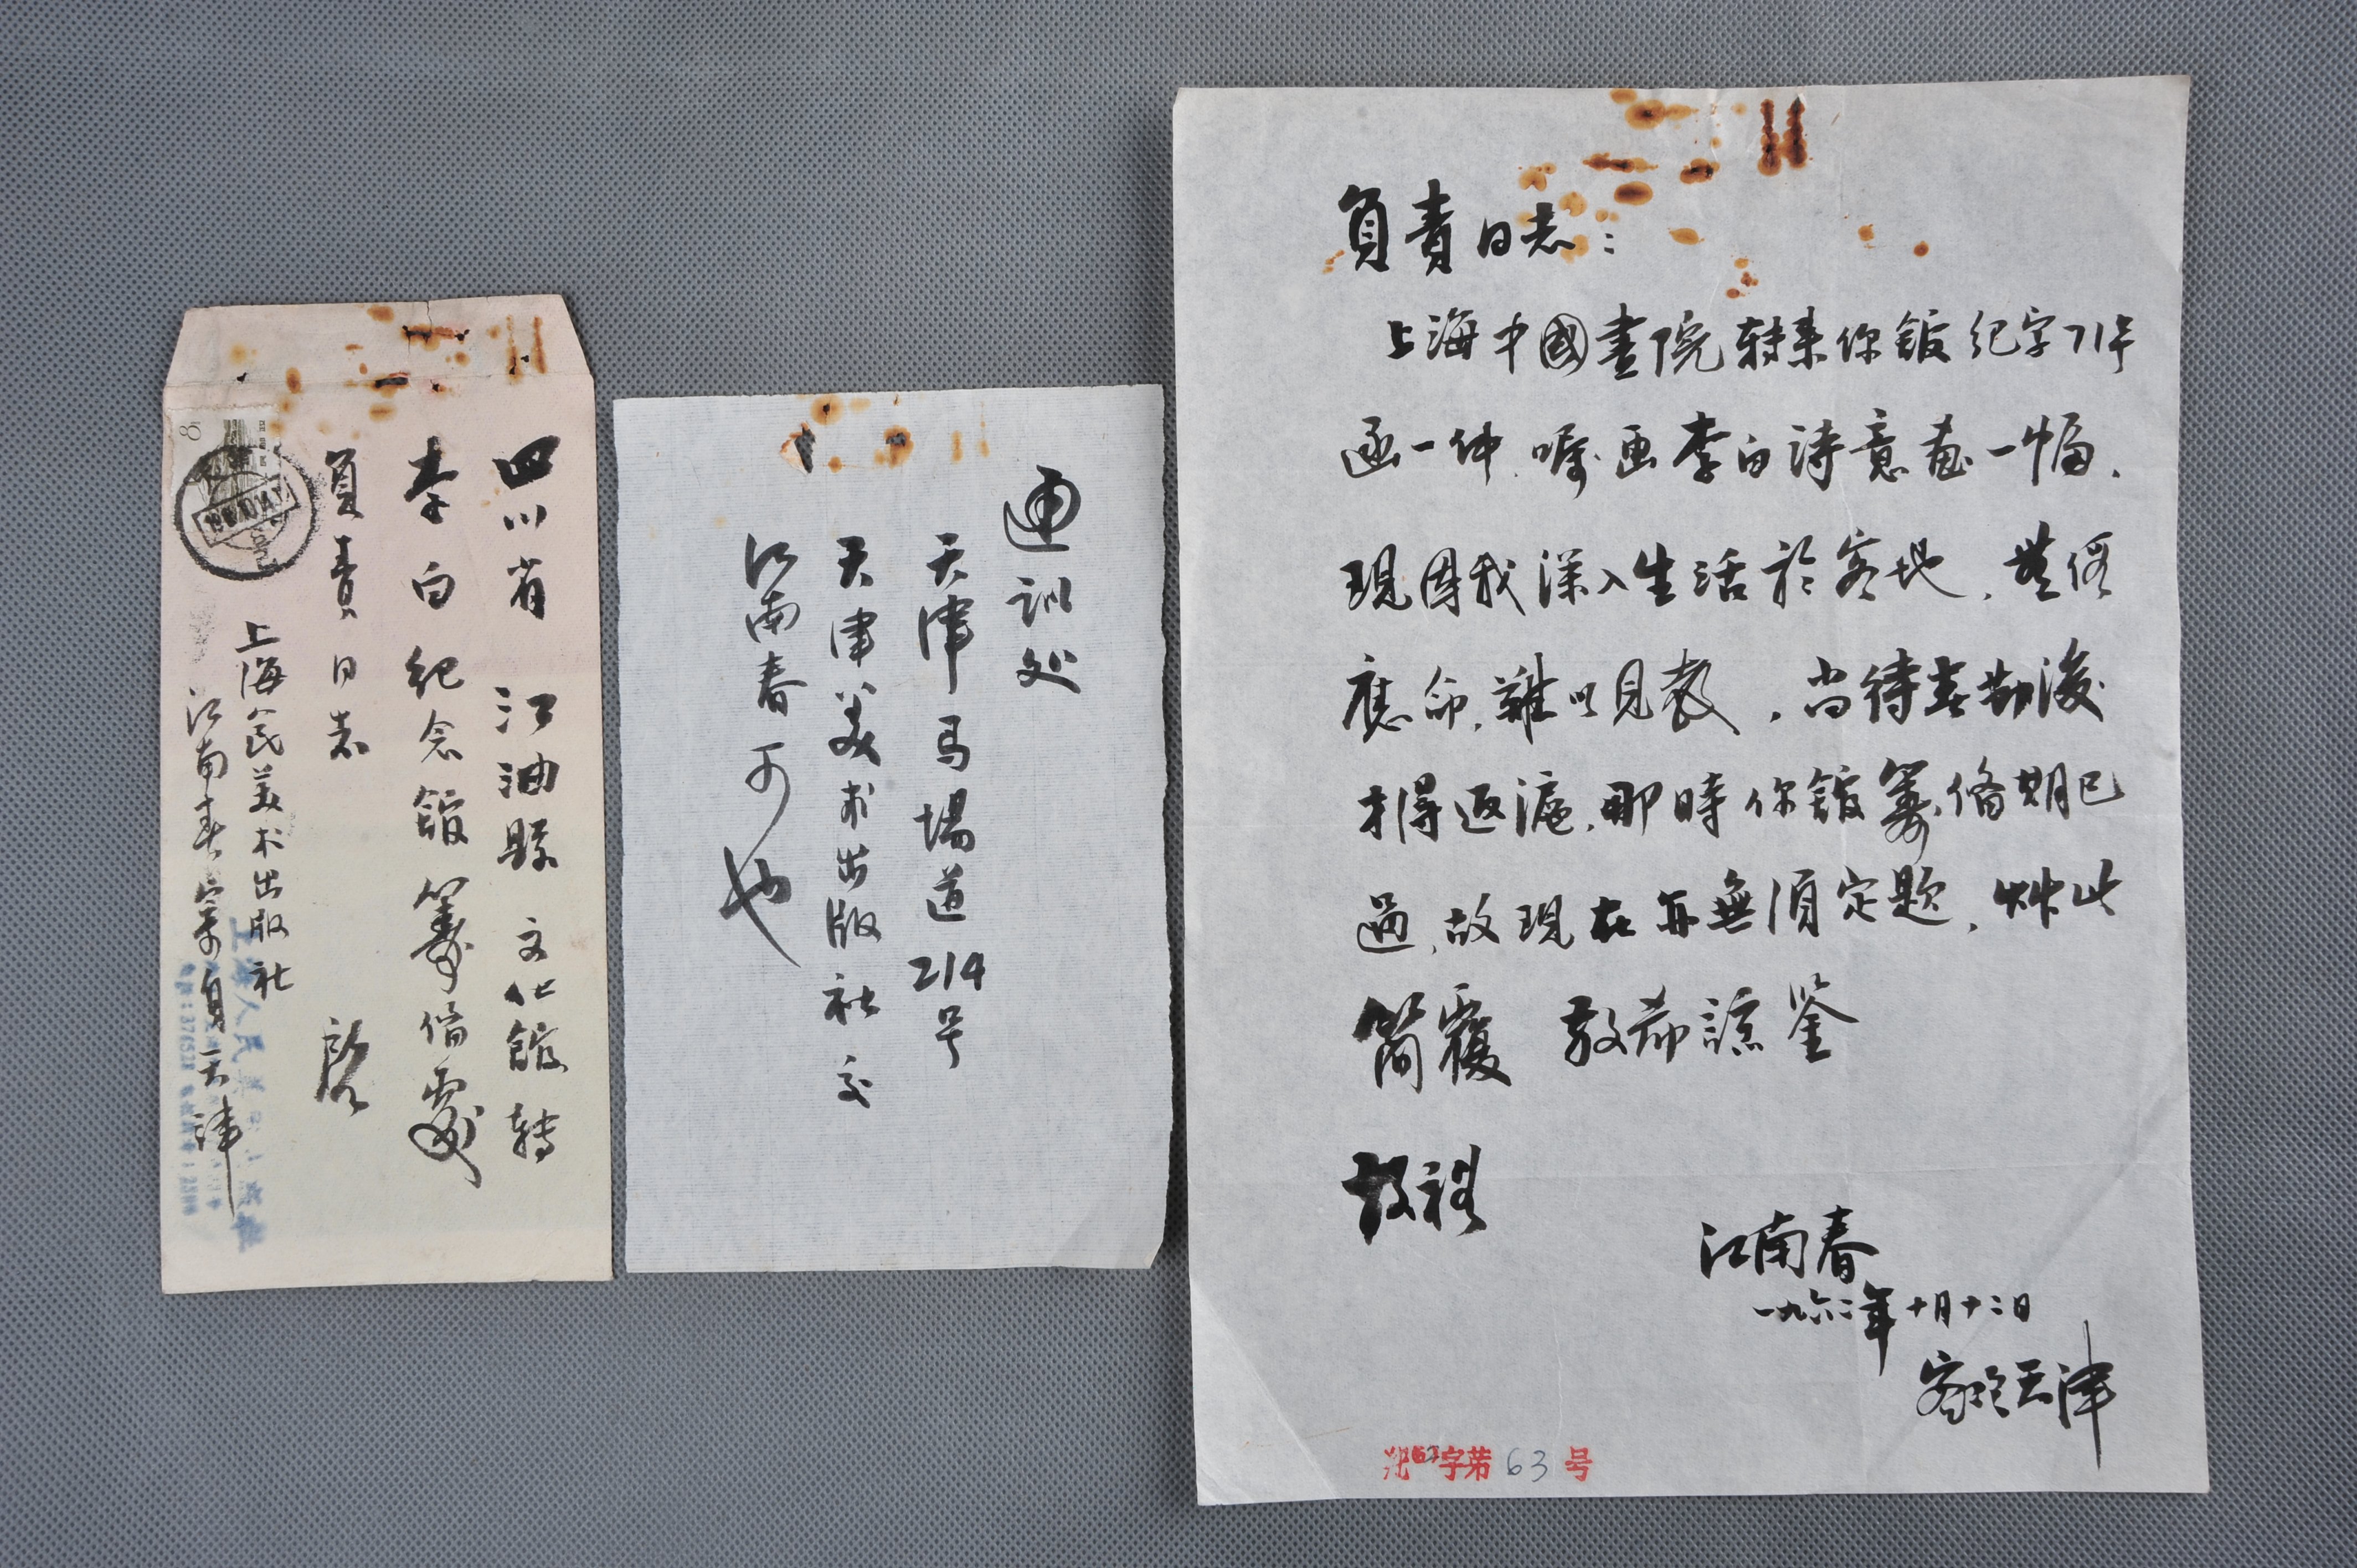 四川省 江油縣 文化館 转
李白纪念館筹備處
負責同志 啓
上海人民美术出版社
江南春寄自天津
8
通訊处
天津马場道214号
天津美术出版社交
江南春可也
負責同志：
上海中國畫院转来你館纪字71号
函一件.嘱画李白诗意画一幅.
現因我深入生活於客地.無從
應命.難以見教.尚待春節後
才得返滬.那時你館籌備期已
過.故現在再無須定题.草此
簡覆 敬希諒鉴
敬禮
江南春
一九六二年十月十二日
客次天津
纪62字第63号